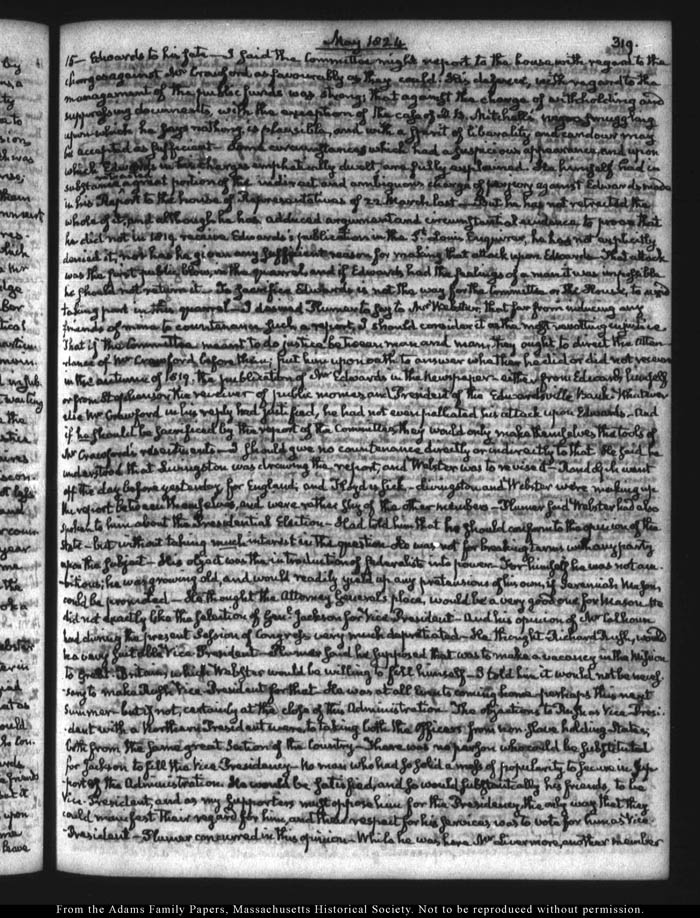 May 1824
319.
15— Edwards to his fate— I said the Committee might report to the house, with regard to the
charges against Mr Crawford, as favourably as they could. His defence, with regard to the
management of the public funds was strong; that against the charge of withholding and
suppressing documents, with the exception of the case of D. B. Mitchell's negro smuggling
upon which he says nothing, is plausible, and with a spirit of liberality and candour may
be accepted as sufficient— Some circumstances which had a suspicious appearance, and upon
which Edwards in his charges emphatically dwelt are fully explained. He himself had in
substance a great portion of the indirect and ambiguous charge of perjury against Edwards made
in his Report to the house of Representatives of 22 March last— But he has not retracted the
whole of it; and although he has adduced argument and circumstantial evidence to prove that
he did not in 1819 receive Edwards's publication in the St Louis Enquirer, he has not explicitly
denied it; nor has he given any sufficient reason for making that attack upon Edwards— That attack
was the first public blow in the quarrel, and if Edwards had the feelings of a man it was impossible
he should not return it— To sacrifice Edwards is not the way for the Committee or the House, to avoid
taking part in this quarrel— I desired Plumer to say to Mr Webster, that far from inducing any
friends of mine to countenance such a report, I should consider it as the most revolting injustice
That if the Committee meant to do justice between man and man, they ought to direct the atten-
-dance of Mr Crawford before them; put him upon oath to answer whether he did or did not receive
in the autumn of 1819. the publication of Mr Edwards in the Newspaper— either from Edwards himself
or from Stephenson, the receiver of public monies, and President of the Edwardsville Bank. Whatever
else Mr Crawford in his reply had justified, he had not even palliated his attack upon Edwards— And
if he should be sacrificed by the report of the Committee, they would only make themselves the tools of
Mr Crawford's resentments— I should give no countenance directly or indirectly to that. He said he
understood that Livingston was drawing the report, and Webster was to revise it— Randolph went
off the day before yesterday, for England, and Floyd is sick— Livingston and Webster were making up
the report between themselves, and were rather shy of the other members— Plumer said Webster had also
spoken to him about the Presidential Election— Had told him that he should conform to the opinion of the
State— but without taking much interest in the question. He was not for breaking terms with any party
upon the subject— His object was the introduction of federalists into power. For himself he was not am-
-bitious; he was growing old, and would readily yield up any pretensions of his own, if Jeremiah Mason,
could be promoted— He thought the Attorney General's place, would be a very good one for Mason. He
did not exactly like the selection of Genl Jackson for Vice President— And his opinion of Mr Calhoun
had during the present Session of Congress very much depreciated— He thought Richard Rush, would
be a very suitable Vice President— Plumer said he supposed that was to make a vacancy in the Mission
to Great Britain, which Webster would be willing to fill himself— I told him it would not be neces-
-sary to make Rush Vice President for that— He was at all events coming home perhaps this next
Summer— but if not, certainly at the close of this Administration— The objections to Rush as Vice Presi-
-dent with a Northern President were to taking both the Officers from non Slave holding States;
both from the same great Section of the Country— There was no person who could be substituted
for Jackson to fill the Vice Presidency— No man who had so solid a mass of popularity to secure in sup-
port of the Administration— He would be satisfied, and so would substantially his friends, to be
Vice-President, and as my supporters must oppose him for the Presidency, the only way that they
could manifest their regard for him, and their respect for his services was to vote for him as Vice
President— Plumer concurred in this opinion— While he was here Mr Livermore, another member
From the Adams Family Papers, Massachusetts Historical Society. Not to be reproduced without permission.